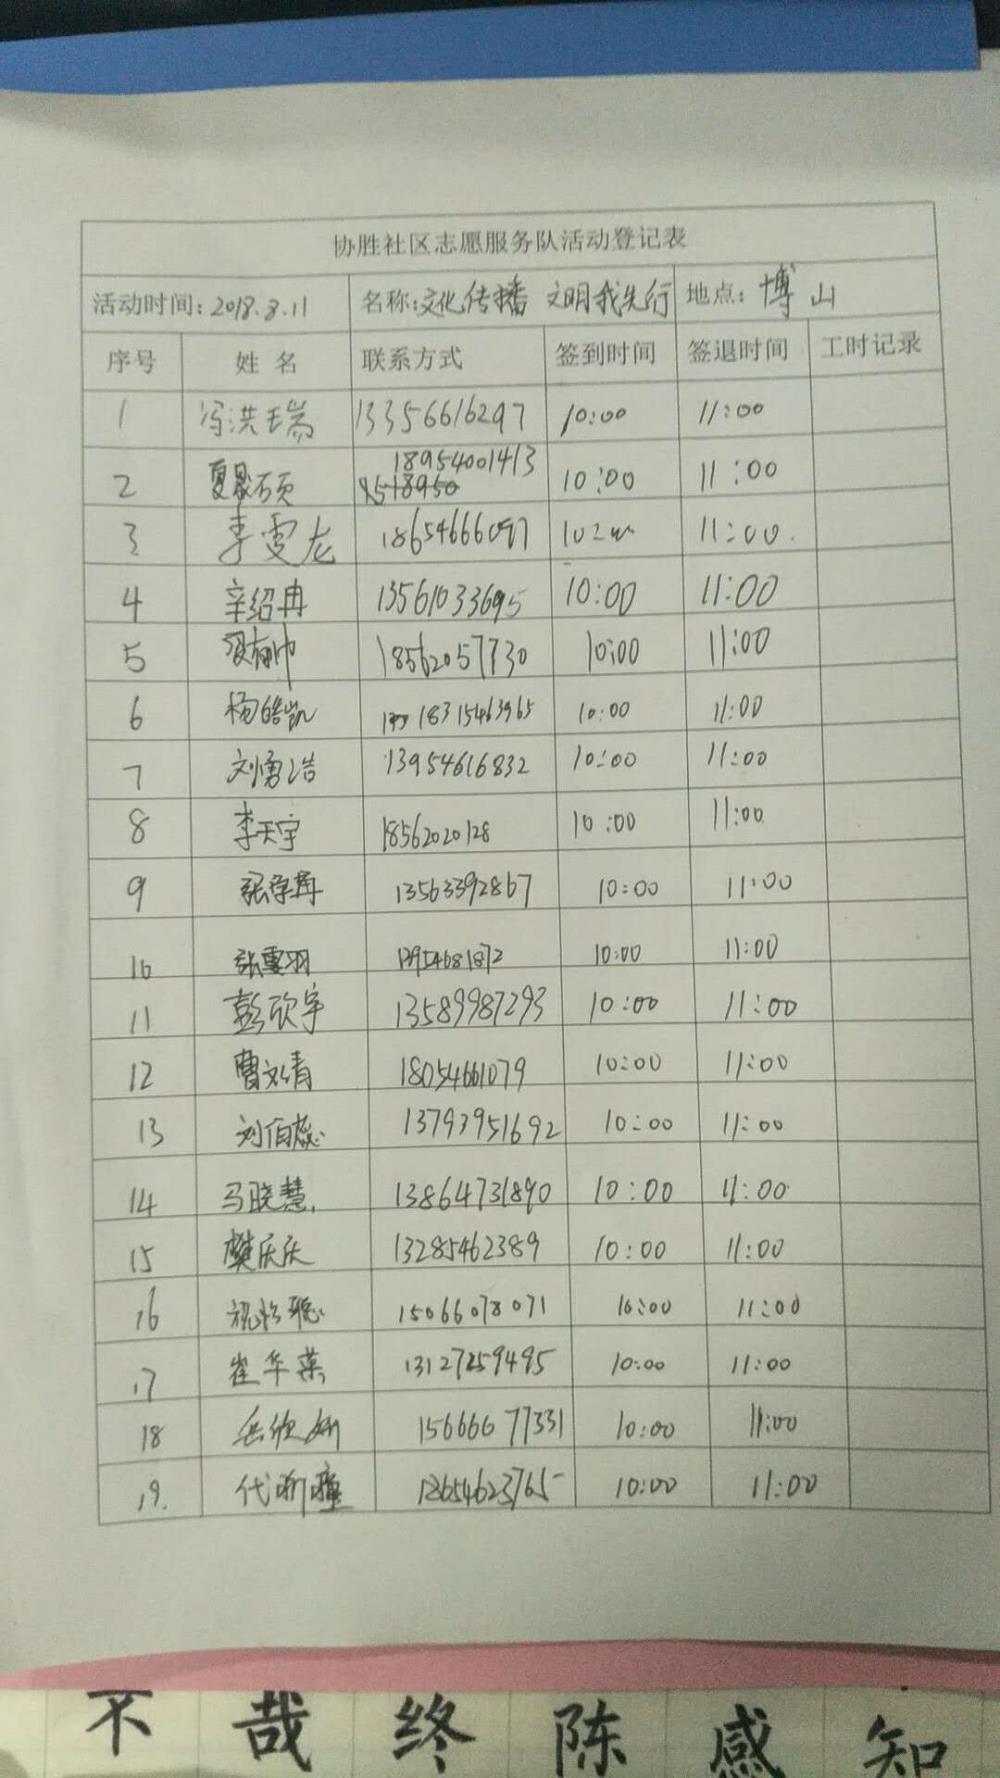 协胜社区志愿服务队活动登记表
活动时间: 2018.3.11 名称:文化传播 文明我先行 地点: 博山
序号 姓名 联系方式 签到时间 签退时间 工时记录
1 冯洪瑞 13356616297 10:00 11:00
2 夏晟硕 18954001413 10:00 11:00
3 李雯龙 18654666097 11:00.
4 辛绍冉 13561033695 10:00 11:00
5 18562057730 10:00 11:00
6 杨皓凯 18315463965 10:00 11:00
7 刘勇浩 13954616832 10:00 11:00
8 李天宇 18562020128 10:00 11:00
9 13563392867 10:00 11:00
10 张雪羽 13954681872 10:00 11:00
11 彭欣宇 13589987293 10:00 11:00
12 曹文清 18054661079 10:00 11:00
13 刘伯蕊 13793951692 10:00 11:00
14 马晓慧 13864731890 10:00 11:00
15 樊庆庆 13285462389 10:00 11:00
16 15066078071 10:00 11:00
17 崔华英 13127259495 10:00 11:00
18 岳欣妍 15666677331 10:00 11:00
19. 18654623765 10:00 11:00
不 哉 终 陈 感 知